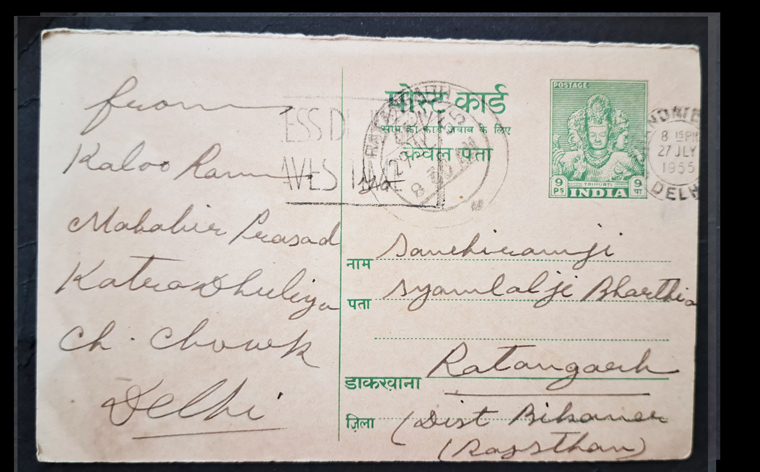 from
Kaloo Ram
Mahabir Prasad
Katra Dhuliya
Ch. Chowk
Delhi
पोस्ट कार्ड
साथ का कार्ड जवाब के लिए
केवल पता
POSTAGE
9 PS
TRIMURTI
INDIA
9 पा
8 15PM
27 JLY
1955
DELHI
नाम Sanchiramji
पता Syamlalji Bharthia
डाकखाना Ratangarh
ज़िला (Dist Bikaner
(Rajsthan)